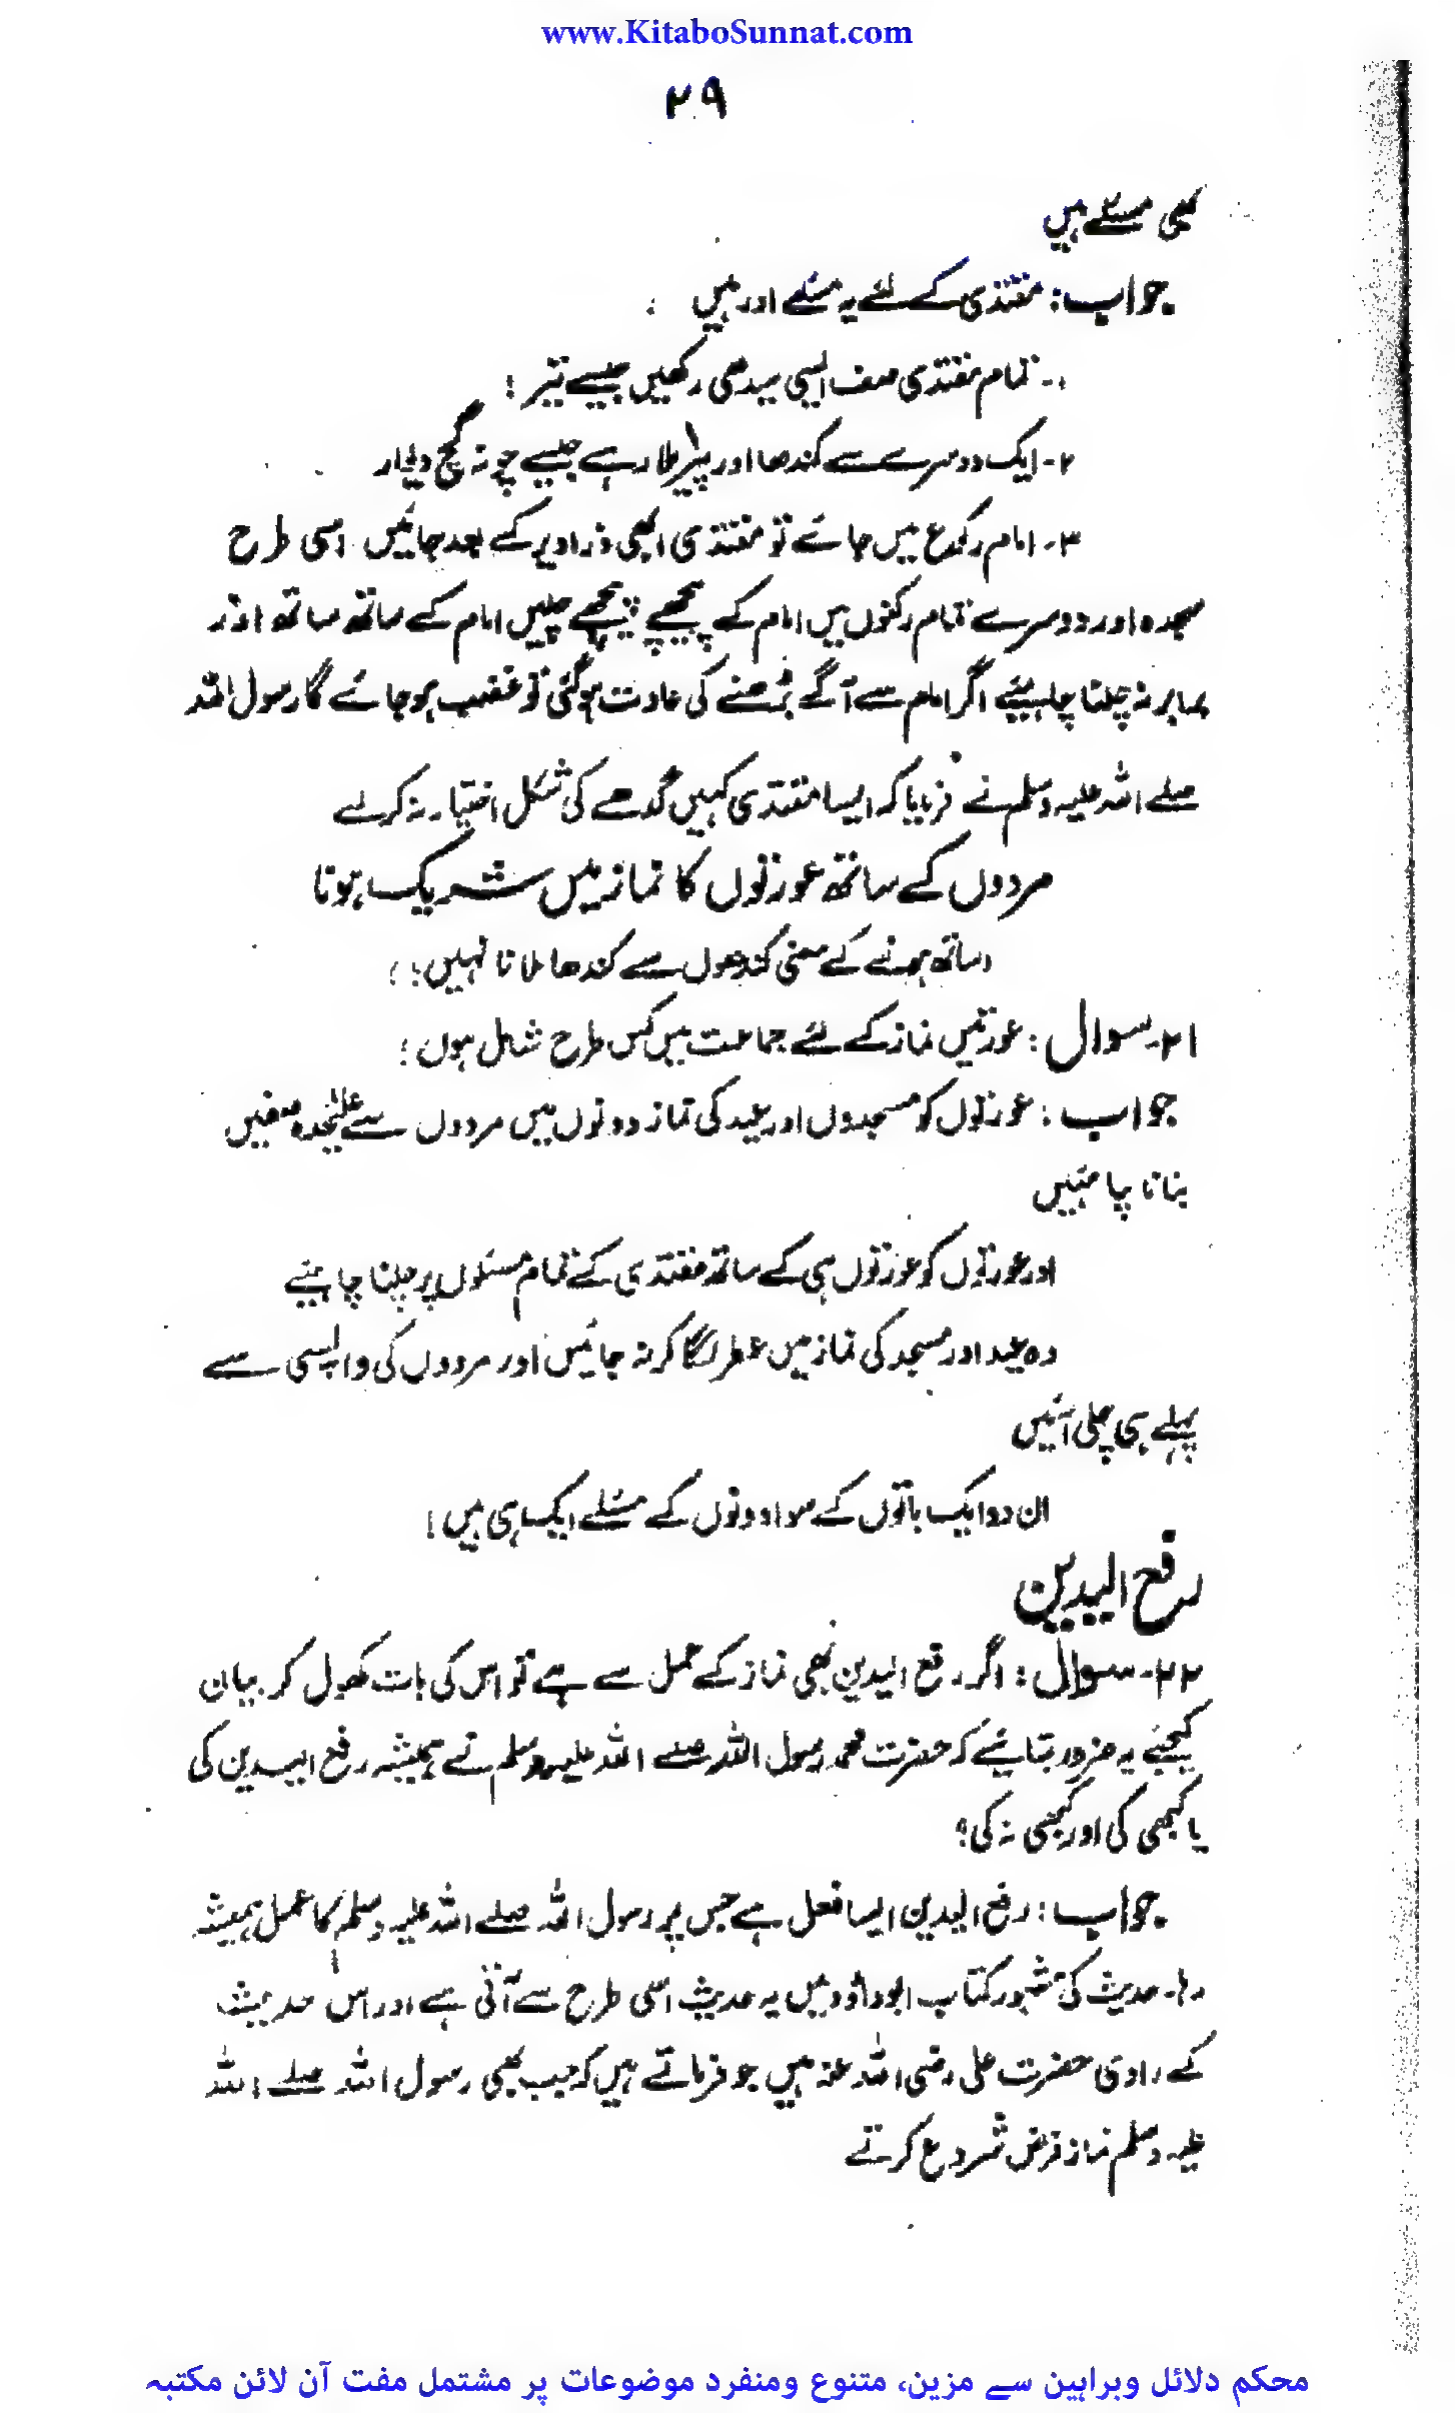 www.KitaboSunnat.com
۲۹
بھی مسئلے ہیں
جواب: مقتدی کے لئے یہ مسئلے اور ہیں :
۱۔ تمام مقتدی صف ایسی سیدھی رکھیں جیسے تیر !
۲۔ ایک دوسرے سے کندھا اور پیر ملا رہے جیسے چونہ گچ دیوار
۳۔ امام رکوع میں جائے تو مقتدی ابھی ذرا دیر کے بعد جائیں اسی طرح
سجدہ اور دوسرے تمام رکنوں میں امام کے پیچھے پیچھے چلیں امام کے ساتھ ساتھ اور
برابر نہ چلنا چاہیئے اگر امام سے آگے بڑھنے کی عادت ہوگئی تو غضب ہو جائے گا رسول اللہ
صلے اللہ علیہ وسلم نے فرمایا کہ ایسا مقتدی کہیں گدھے کی شکل اختیار نہ کر لے
مردوں کے ساتھ عورتوں کا نماز میں شریک ہونا
(ساتھ ہونے کے معنی کندھوں سے کندھا ملانا نہیں !)
۲۱۔ سوال : عورتیں نماز کے لئے جماعت میں کس طرح شامل ہوں ؛
جواب : عورتوں کو مسجدوں اور عید کی نماز دونوں میں مردوں سے علیٰحدہ صفیں
بنانا چاہئیں
اور عورتوں کو عورتوں ہی کے ساتھ مقتدی کے تمام مسئلوں پر چلنا چاہیئے
وہ عید اور مسجد کی نماز میں عطر لگا کر نہ جائیں اور مردوں کی واپسی سے
پہلے ہی چلی آئیں
ان دو ایک باتوں کے سوا دونوں کے مسئلے ایک ہی ہیں !
رفع الیدین
۲۲۔ سوال : اگر رفع الیدین بھی نماز کے عمل سے ہے تو اس کی بات کھول کر بیان
کیجئے یہ ضرور بتائیے کہ حضرت محمد رسول اللہ صلے اللہ علیہ وسلم نے ہمیشہ رفع الیدین کی
یا کبھی کی اور کبھی نہ کی؟
جواب : رفع الیدین ایسا فعل ہے جس پر رسول اللہ صلے اللہ علیہ وسلم کا عمل ہمیشہ
۱۔ حدیث کی مشہور کتاب ابوداؤد میں یہ حدیث اسی طرح سے آئی ہے اور اس حدیث
کے راوی حضرت علی رضی اللہ عنہ ہیں جو فرماتے ہیں کہ جب بھی رسول اللہ صلے اللہ
علیہ وسلم نماز فرض شروع کرتے
محکم دلائل وبراہین سے مزین، متنوع ومنفرد موضوعات پر مشتمل مفت آن لائن مکتبہ